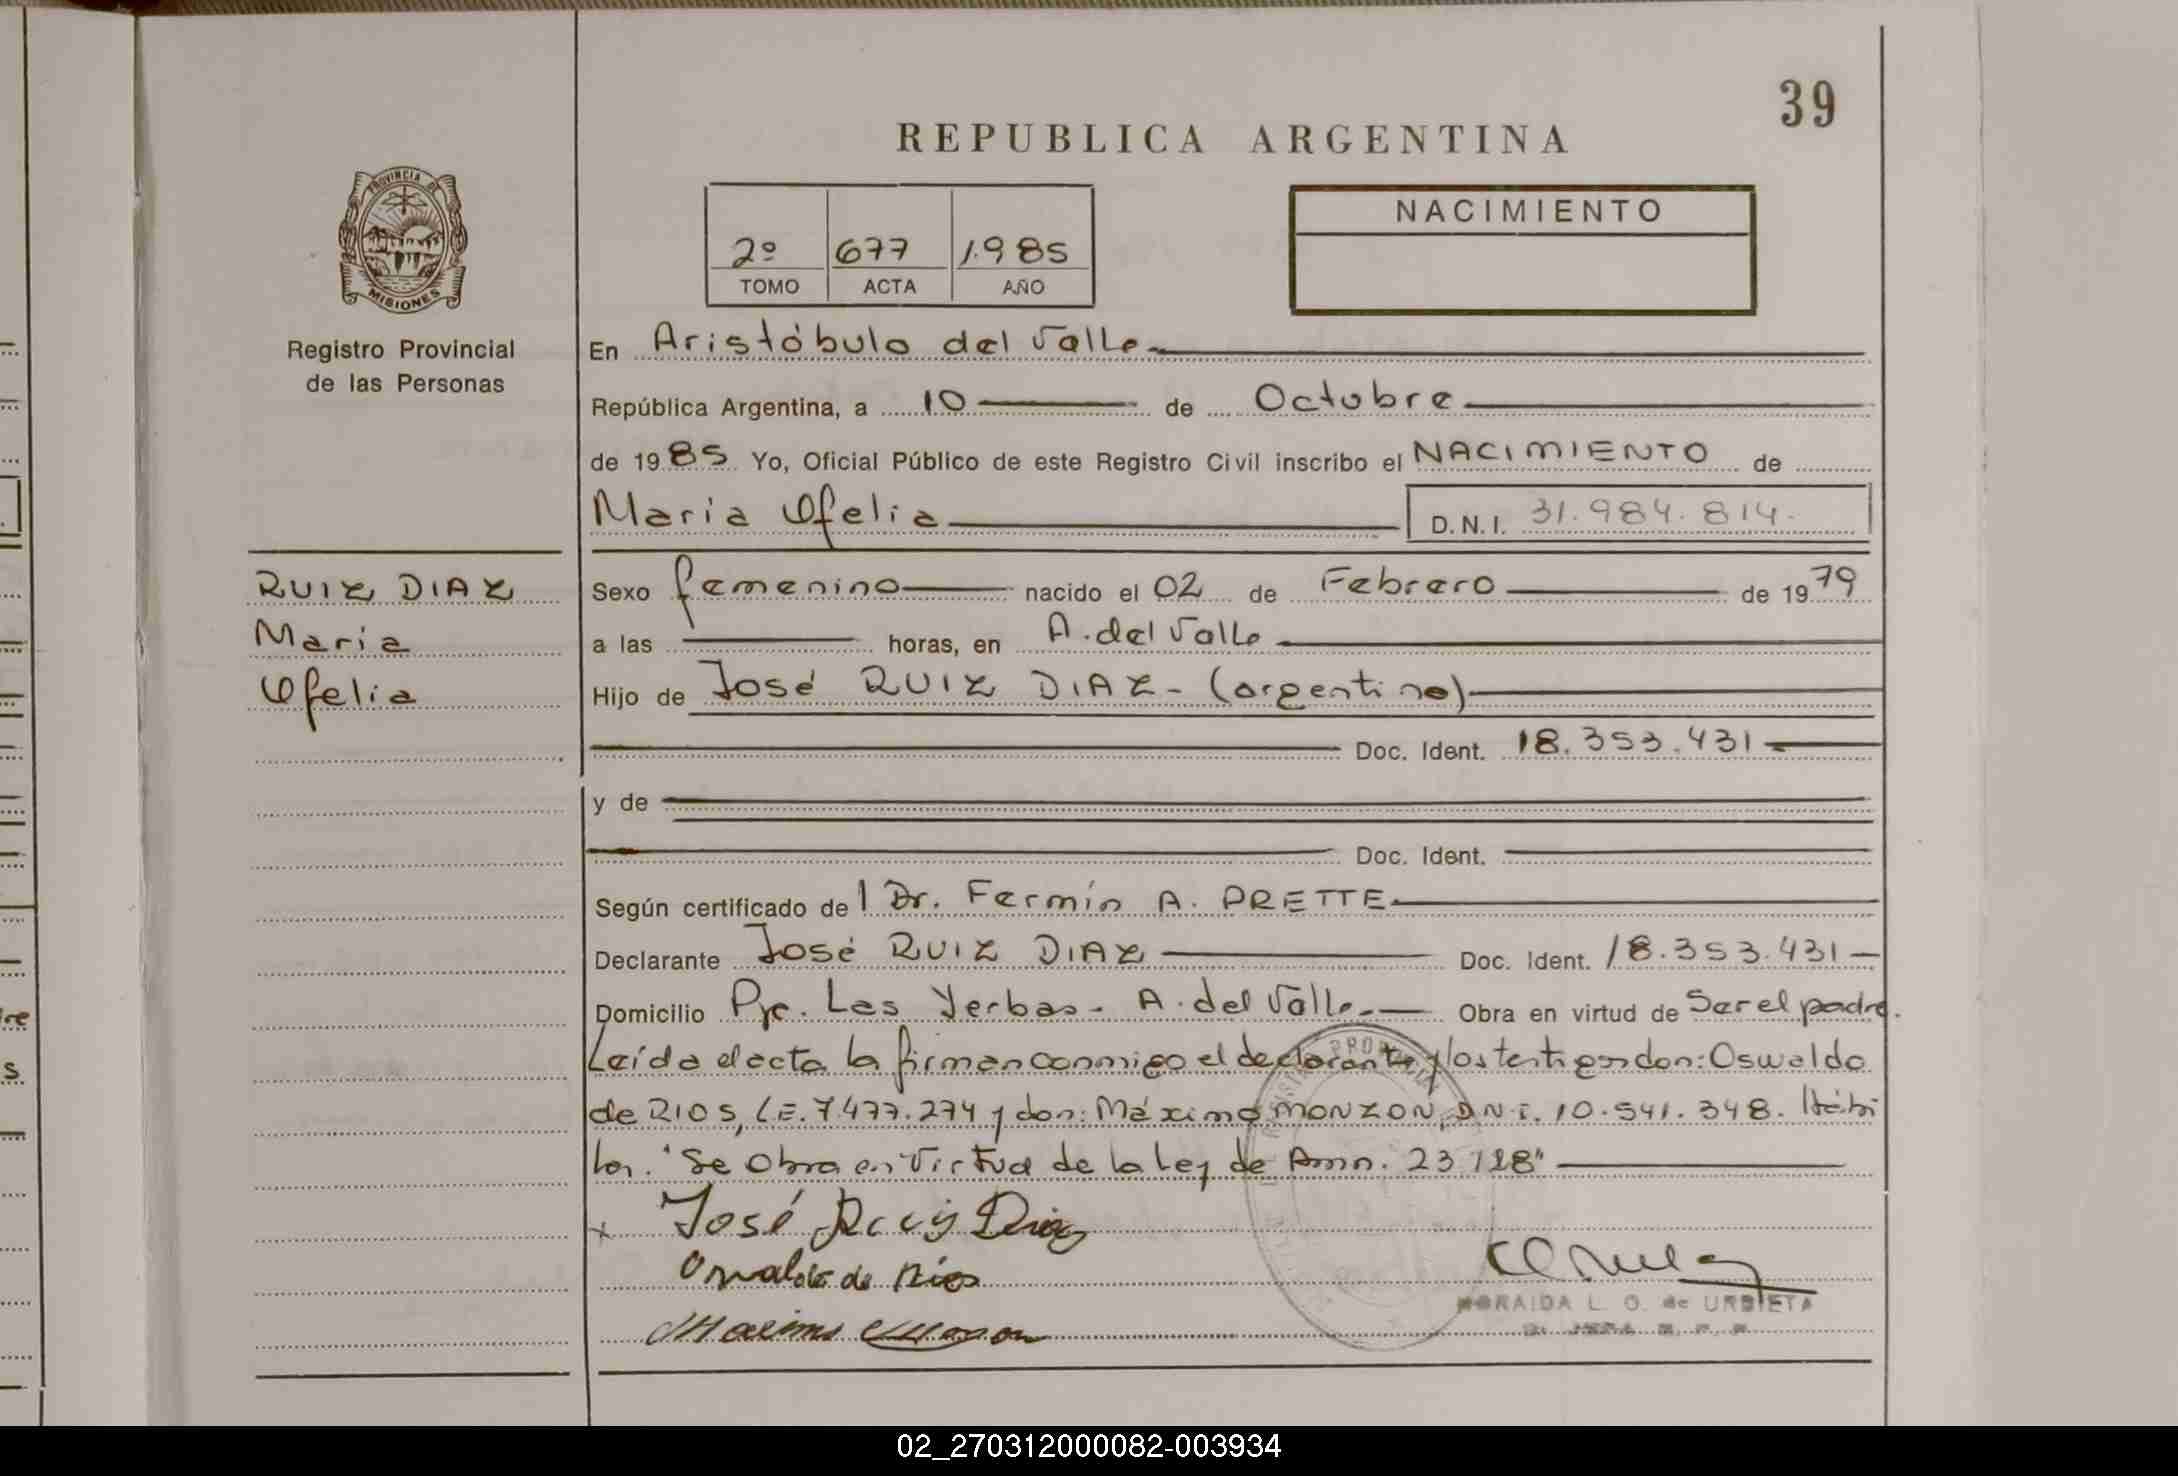 39
REPUBLICA ARGENTINA
PROVINCIA DE
MISIONES
Registro Provincial
de las Personas
2º 677 1985
TOMO ACTA AÑO
NACIMIENTO
En Aristóbulo del Valle
República Argentina, a 10 de Octubre
de 1985 Yo, Oficial Público de este Registro Civil inscribo el NACIMIENTO de
María Ofelia D.N.I. 31.984.814.
RUIZ DIAZ
María
Ofelia
Sexo femenino nacido el 02 de Febrero de 1979
a las horas, en A. del Valle
Hijo de José RUIZ DIAZ - (argentino)
Doc. Ident. 18.353.431
y de
Doc. Ident.
Según certificado del Dr. Fermín A. PRETTE
Declarante José RUIZ DIAZ Doc. Ident. 18.353.431
Domicilio Pje. Las Yerbas - A. del Valle Obra en virtud de Ser el padre.
Leída el acta la firman conmigo el declarante y los testigos don: Oswaldo
de RIOS, L.E. 7.477.274 y don: Máximo MONZON, D.N.I. 10.541.348. Hábi
les. "Se Obra en Virtud de la Ley de Amn. 23.128"
x José Ruiz Diaz
Oswaldo de Rios
Maximo Monzon
MORAIDA L. O. de URBIETA
02_270312000082-003934